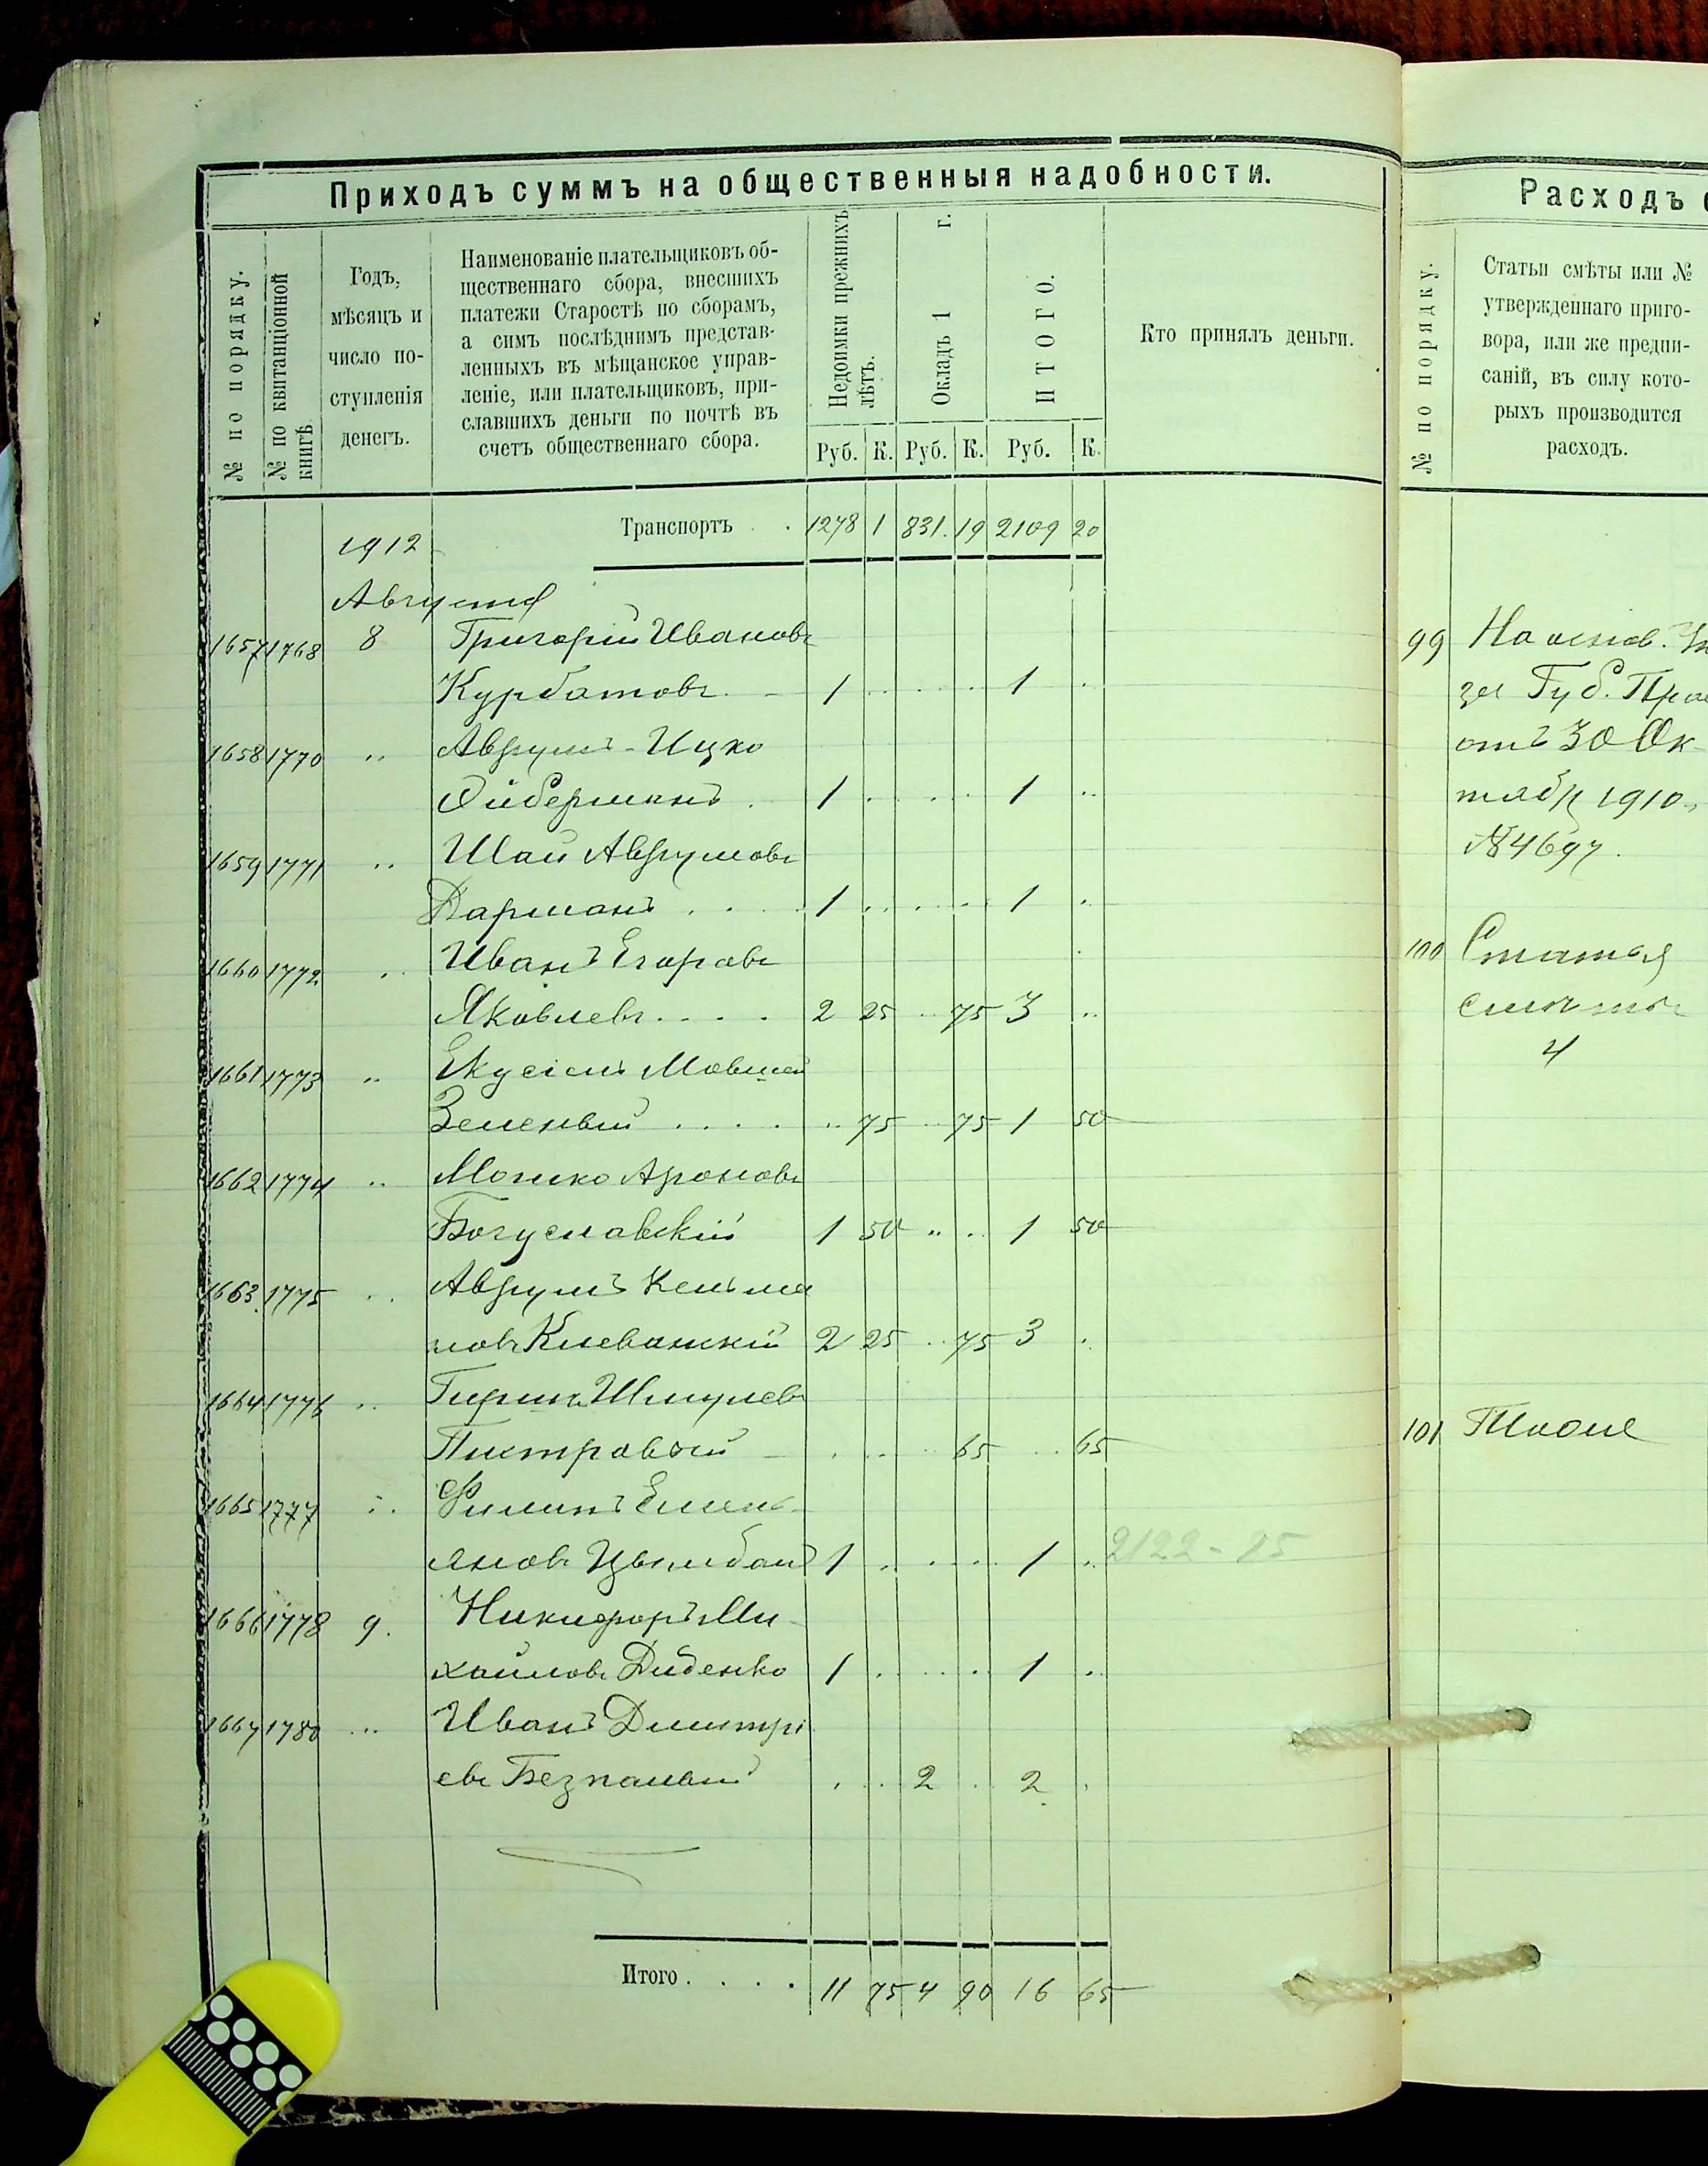 Приходъ суммъ на общественныя надобности.
№ по порядку.
№ по квитанціонной книгѣ.
Годъ,
мѣсяцъ и
число по-
ступленія
денегъ.
Наименованіе плательщиковъ об-
щественнаго сбора, внесшихъ
платежи Старостѣ по сборамъ,
а симъ послѣднимъ представ-
ленныхъ въ мѣщанское управ-
леніе, или плательщиковъ, при-
славшихъ деньги по почтѣ въ
счетъ общественнаго сбора.
Недоимки прежнихъ
лѣтъ.
Окладъ 1 г.
ИТОГО.
Руб. К. Руб. К. Руб. К.
Кто принялъ деньги.
1912 Транспортъ . . 1278 1 831. 19 2109 20
Августа
1657 1768 8 Григорій Ивановъ
Курбатовъ 1 1
1658 1770 " Аврумъ-Ицко
1 1
1659 1771 " Шая Аврумовъ
1 1
1660 1772 " Иванъ Егоровъ
Яковлевъ . . . . 2 25 75 3
1661 1773 " Екусіель
Зеленый . . . . 75 75 1 50
1662 1774 " Мошко Ароновъ
Богуславскій 1 50 1 50
1663 1775 " Аврумъ
2 25 75 3
1664 1776 " Шмулевъ
65 65
1665 1777 " Филипъ Емель-
яновъ Цымбалъ 1 1 2122-85
1666 1778 9. Никифоръ Ми-
хайловъ Диденко 1 1
1667 1780 " Иванъ Дмитрі
евъ Безпалый 2 2
Итого . . . . 11 75 4 90 16 65
Расходъ
№ по порядку.
Статьи смѣты или №
утвержденнаго приго-
вора, или же предпи-
саній, въ силу кото-
рыхъ производится
расходъ.
99 На основ.
за Губ. Прав
отъ 30 Ок-
тября 1910
№ 4697.
100 Статья
смѣты
4
101 Тоже